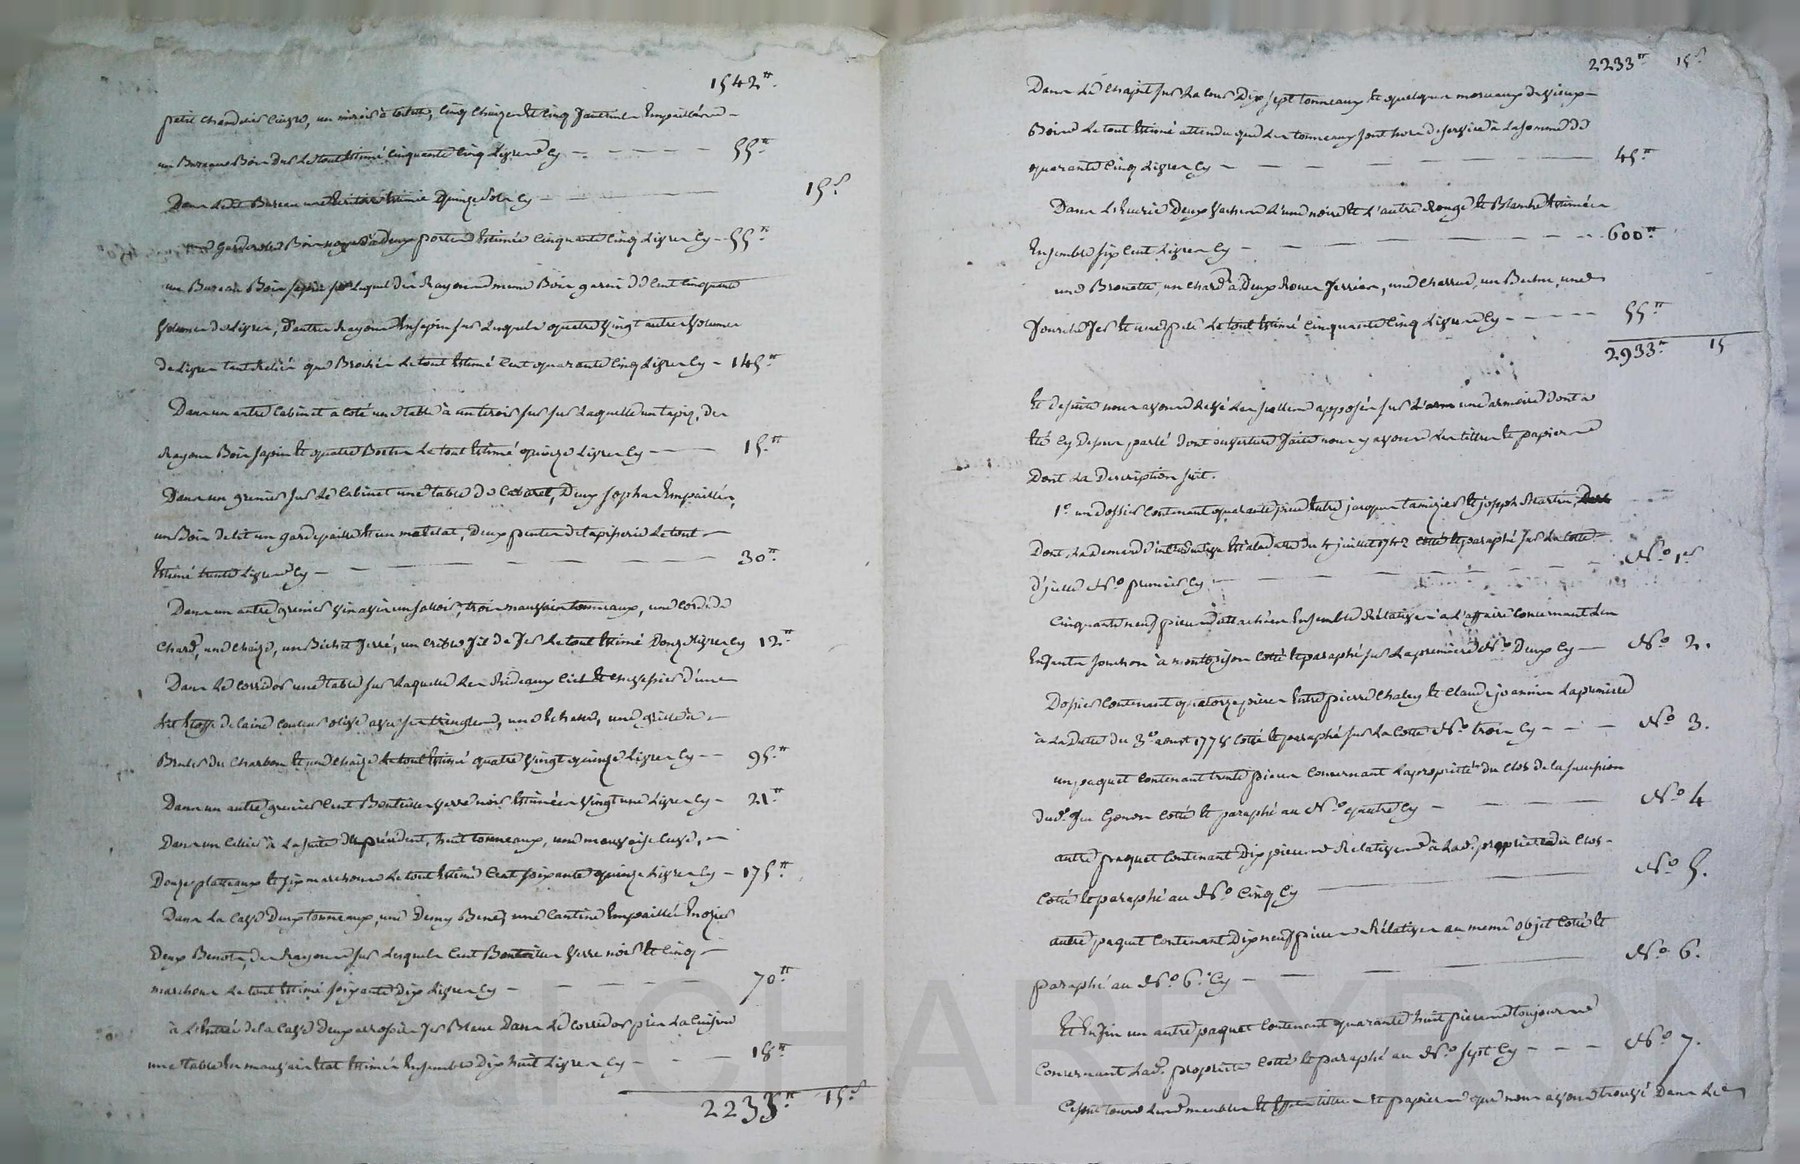 1542ᵗᵗ
petit chandelier cuivre, un miroir à toilette, cinq chaizes et cinq fauteuils Empaillées
un Bureau Bois dur Le tout Estimé cinquante cinq Livres Cy - - - - 55ᵗᵗ
Dans Led. Bureau une Ecritoire Estimée Quinze sols Cy - - - 15ˢ
une Garderobe Bois noyer à Deux portes Estimée cinquante cinq Livres Cy - 55ᵗᵗ
un Bureau Bois sapin sur Lequel des Rayons meme Bois garnis de cent cinquante
Volumes de Livres, D'autres Rayons En sapin sur Lesquels quatre Vingt autres Volumes
de Livres tant Reliés que Brochés Le tout Estimé cent quarante cinq Livres Cy - 145ᵗᵗ
Dans un autre Cabinet a coté une table à un tiroir sur sur Laquelle un tapis, des
Rayons Bois sapin et quatre Boetes Le tout Estimé quinze Livres Cy - - 15ᵗᵗ
Dans un grenier sur Le Cabinet une table de Cabaret, Deux sophas Empaillés,
un Bois de lit un gardepaille et un matelat, Deux pentes de tapisserie Le tout
Estimé trente Livres Cy - - - - - - 30ᵗᵗ
Dans un autre grenier vis avis un saloir, trois mauvais tonneaux, une corde de
Chard, une chaize, un Bichet ferré, un crible fil de fer Le tout Estimé Douze Livres Cy 12ᵗᵗ
Dans Le corridor une table sur Laquelle Les Rideaux Ciel et Chassier d'un
Lit Etoffe de laine couleur olive avec ses tringles, une Echelle, une grille à
Bruler du charbon et une chaize Le tout Estimé quatre Vingt quinze Livres Cy - - 95ᵗᵗ
Dans un autre grenier Cent Bouteilles Verre noir Estimées Vingt une Livres Cy - 21ᵗᵗ
Dans un Cellier à La suite du précédent, huit tonneaux, une mauvaise Cuve,
Douze plateaux et six marchons Le tout Estimé Cent soixante quinze Livres Cy - 175ᵗᵗ
Dans La Cave Deux tonneaux, une Demy Bene, une Cantine Empaillée En ozier
Deux Benots, des Rayons sur Lesquels Cent Bouteilles Verre noir et Cinq
marchons Le tout Estimé soixante Dix Livres Cy - - - - 70ᵗᵗ
à L'Entrée de la Cave Deux arrosoirs fer Blanc Dans Le corridor près La Cuisine
une table En mauvais Etat Estimés Ensemble Dix huit Livres Cy - - - 18ᵗᵗ
2233ᵗᵗ 15ˢ
2233ᵗᵗ 15ˢ
Dans Le Chapit sur La Cour Dix sept tonneaux et quelques morceaux de Vieux
Bois Le tout Estimé attendu que Les tonneaux sont hors de service à La somme de
quarante Cinq Livres Cy - - - - - 45ᵗᵗ
Dans L'Ecurie Deux Vaches L'une noire et L'autre Rouge et Blanche Estimées
Ensemble six Cent Livres Cy - - - - - 600ᵗᵗ
une Brouette, un Chard à Deux Roues ferrées, une Charrue, un Bechat, une
fourche fer et une pele Le tout Estimé Cinquante Cinq Livres Cy - - - - 55ᵗᵗ
2933ᵗᵗ 15
Et De suite nous avons Levé Les scellés apposés sur L'arm une armoire Dont a
Eté Cy Dessus parlé Dont ouverture faite nous y avons Les titres et papiers
Dont La Description suit.
1º. un Dossier Contenant quarante pieces Entre jacques tamizier et joseph Martin,
Dont La Demande introductive Est à la Datte du 4 juillet 1742 Cotté et paraphé sur La Cotte
D'icelle Nº premier Cy - - - - - - Nº 1er
Cinquante neuf pieces attachées Ensemble Rélatives à L'affaire Concernant Les
Enfants jonchon à montbrison Cotté et paraphé sur La premiere Nº Deux Cy - Nº 2.
Dossier Contenant quatorze pieces Entre pierre Chalas et Claude joannin La premiere
à La Datte du 3e aoust 1778 Cotté et paraphé sur La Cotte Nº trois Cy - - - Nº 3.
un paquet Contenant trente pieces Concernant La proprieté du Clos de
Dud. Genon Cotté et paraphé au Nº quatre Cy - - - Nº 4
autre paquet Contenant Dix pieces Relatives à Lad. proprieté du Clos
Cotté et paraphé au Nº Cinq Cy - - - Nº 5.
autre paquet Contenant Dix neuf pieces Rélatives au meme objet Cotté et
paraphé au Nº 6. Cy - - - Nº 6.
Et Enfin un autre paquet Contenant quarante huit pieces toujours
Concernant Lad. proprieté Cotté et paraphé au Nº sept Cy - - - Nº 7.
Ce sont tous Les meubles et Effets titres et papiers que nous avons trouvé Dans Le
J CHARTEYRON